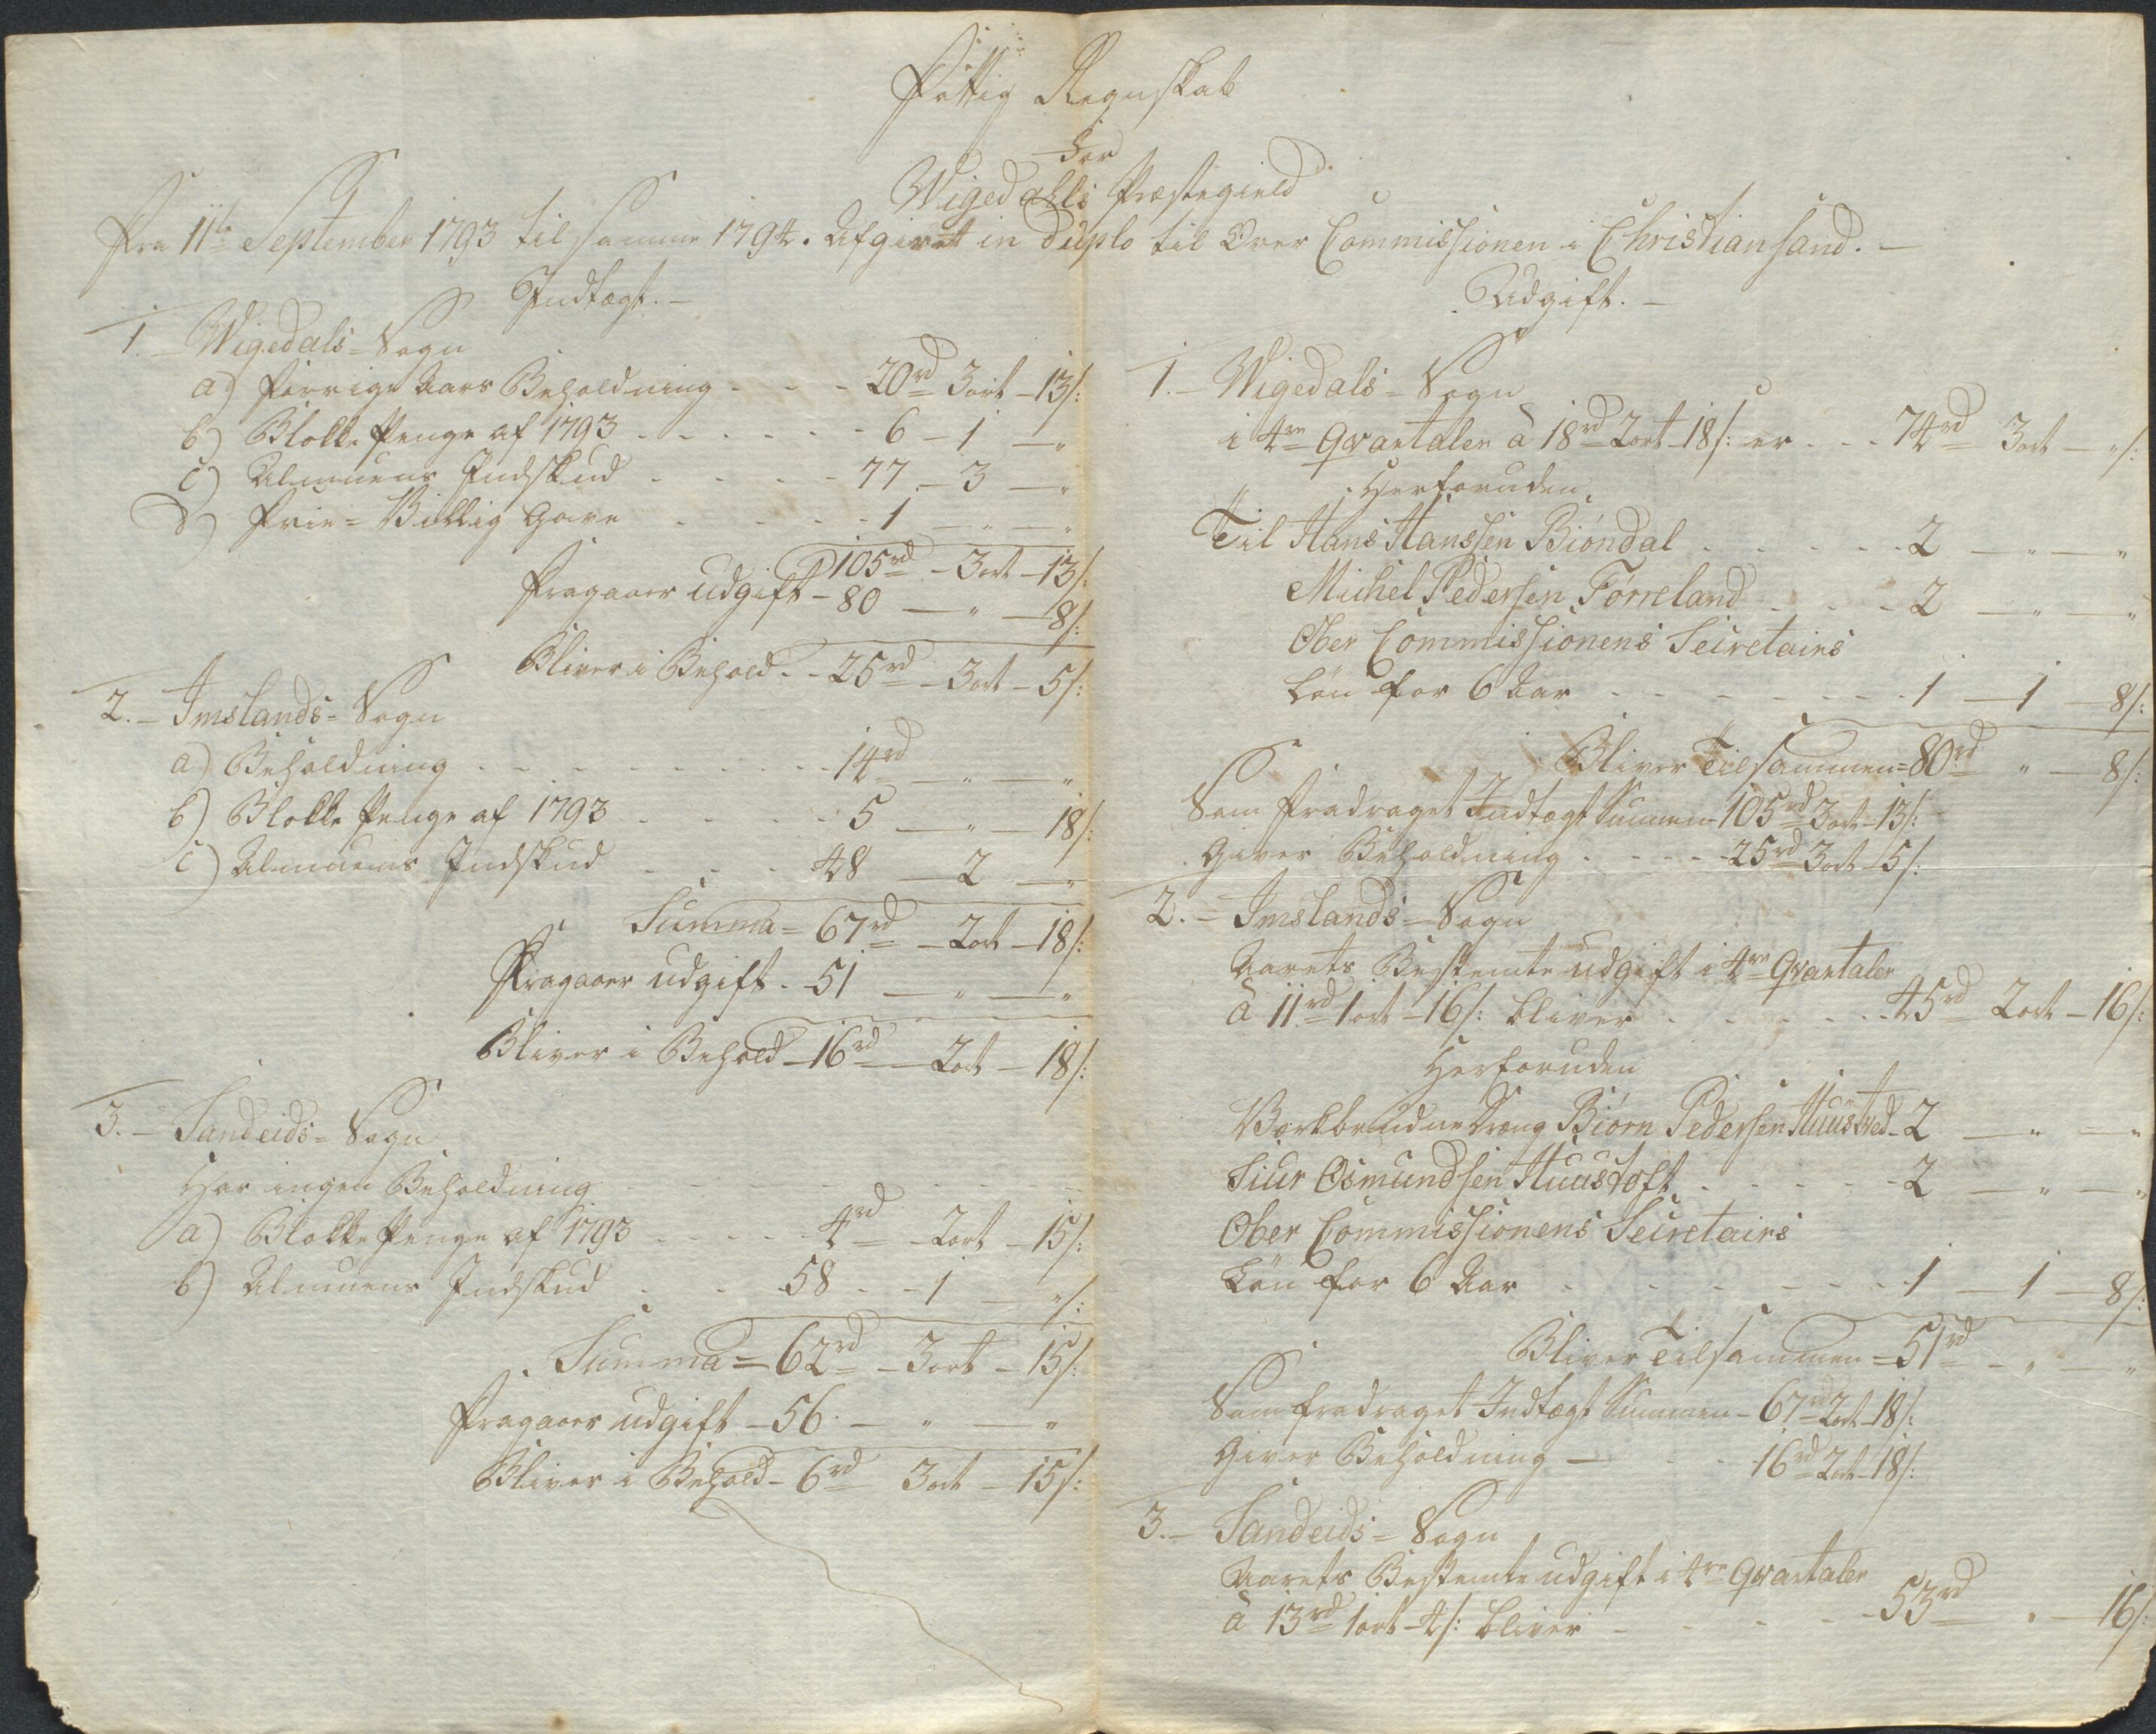 Fattig Regnskab
for
Wigedahls Præstegield
Fra 11te September 1793 til samme 1794. Afgivet in duplo til Over Commissionen i Christiansand. —
Indtægt. —
1. — Wigedals = Sogn
a) forrige Aars Beholdning - - - 20rd 3ort - 13/:
b) Blokke Penge af 1793 - - - - - 6 - 1 - "
c) Almuens Indskud - - - - - 77 - 3 - "
d) Frie = Villig Gave - - - - - 1 - " - "
105rd - 3ort - 13/:
Fragaaer udgift - 80 - " - 8/:
Bliver i Behold - - 25rd - 3ort - 5/:
2. — Imslands = Sogn
a) Beholdning - - - - - - - 14rd - " - "
b) Blokke Penge af 1793 - - - - 5 - " - 18/:
c) Almuens Indskud - - - 48 - 2 - "
Summa = 67rd - 2ort - 18/:
Fragaaer udgift - 51 - " - "
Bliver i Behold - 16rd - 2ort - 18/:
3. — Sandeids = Sogn
Har ingen Beholdning
a) Blokke Penge af 1793 - - - - 4rd - 2ort - 15/:
b) Almuens Indskud - - 58 - - 1 - "/:
Summa = 62rd - 3ort - 15/:
Fragaaer udgift - 56 - " - "
Bliver i Behold - 6rd 3ort - 15/:
Udgift. —
1. — Wigedals = Sogn
i 4re Qvartaler à 18rd 2ort 18/: er - - - 74rd 3ort - "/:
Herforuden
Til Hans Hanssen Biøndal - - - - - 2 - " - "
Michel Pedersen Førreland - - - 2 - " - "
Ober Commissionens Secretairs
Løn for 6 Aar - - - - - - - 1 - 1 - 8/:
Bliver Tilsammen = 80rd " - 8/:
Som fradraget Indtægt Summen 105rd 3ort - 13/:
Giver Beholdning - - - - 25rd 3ort 5/:
2. — Imslands = Sogn
Aarets Bestemte udgift i 4re Qvartaler
à 11rd 1ort - 16/: bliver - - - - - 45rd 2ort - 16/:
Herforuden
Biørn Pedersen Huustved - 2 - " - "
Siur Osmundsen Huustoft - - - - - 2 - " - "
Ober Commissionens Secretairs
Løn for 6 Aar - - - - - - - 1 - 1 - 8/:
Bliver Tilsammen = 51rd - " - "
Som fradraget Indtægt Summen - 67rd 2ort - 18/:
Giver Beholdning — - - 16rd 2ort - 18/:
3. — Sandeids = Sogn
Aarets Bestemte udgift i 4re Qvartaler
à 13rd 1ort - 4/: bliver - - - - 53rd " - 16/: